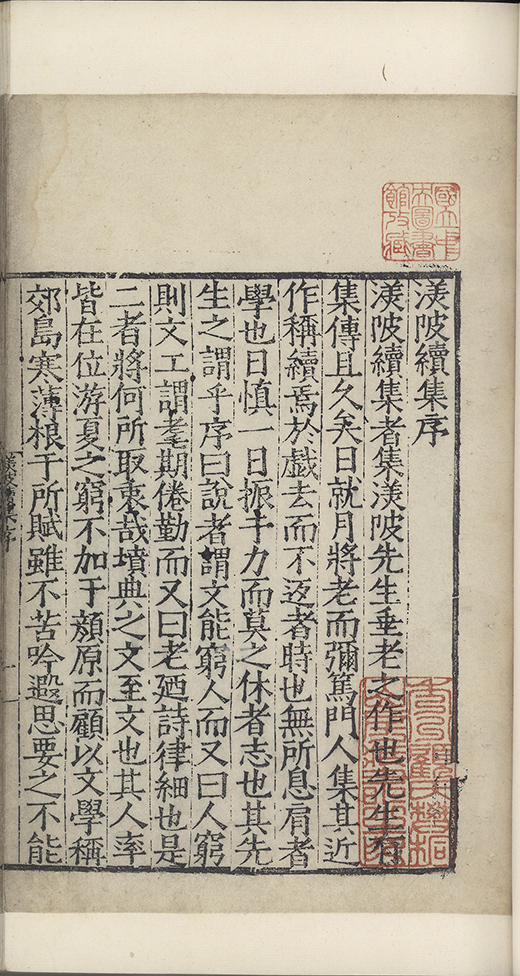 渼陂續集序
渼陂續集者集渼陂先生垂老之作也先生有
集傳且久矣日就月將老而彌篤門人集其近
作稱續焉於戱去而不返者時也無所息肩者
學也日慎一日振手力而莫之休者志也其先
生之謂乎序曰說者謂文能窮人而又曰人窮
則文工謂耄期倦勤而又曰老廼詩律細也是
二者將何所取衷哉墳典之文至文也其人率
皆在位游夏之窮不加于頼原而顧以文學稱
郊島寒薄根于所賦雖不苦吟遐思要之不能
國立中
央圖書
館攷藏